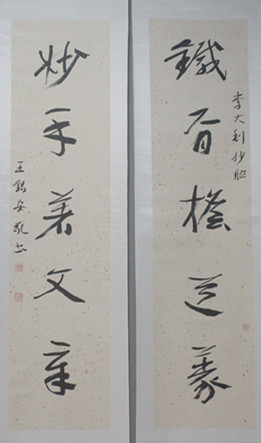 鐵肩擔道義
李大釗抄聯
妙手著文章
王鋁安敬書